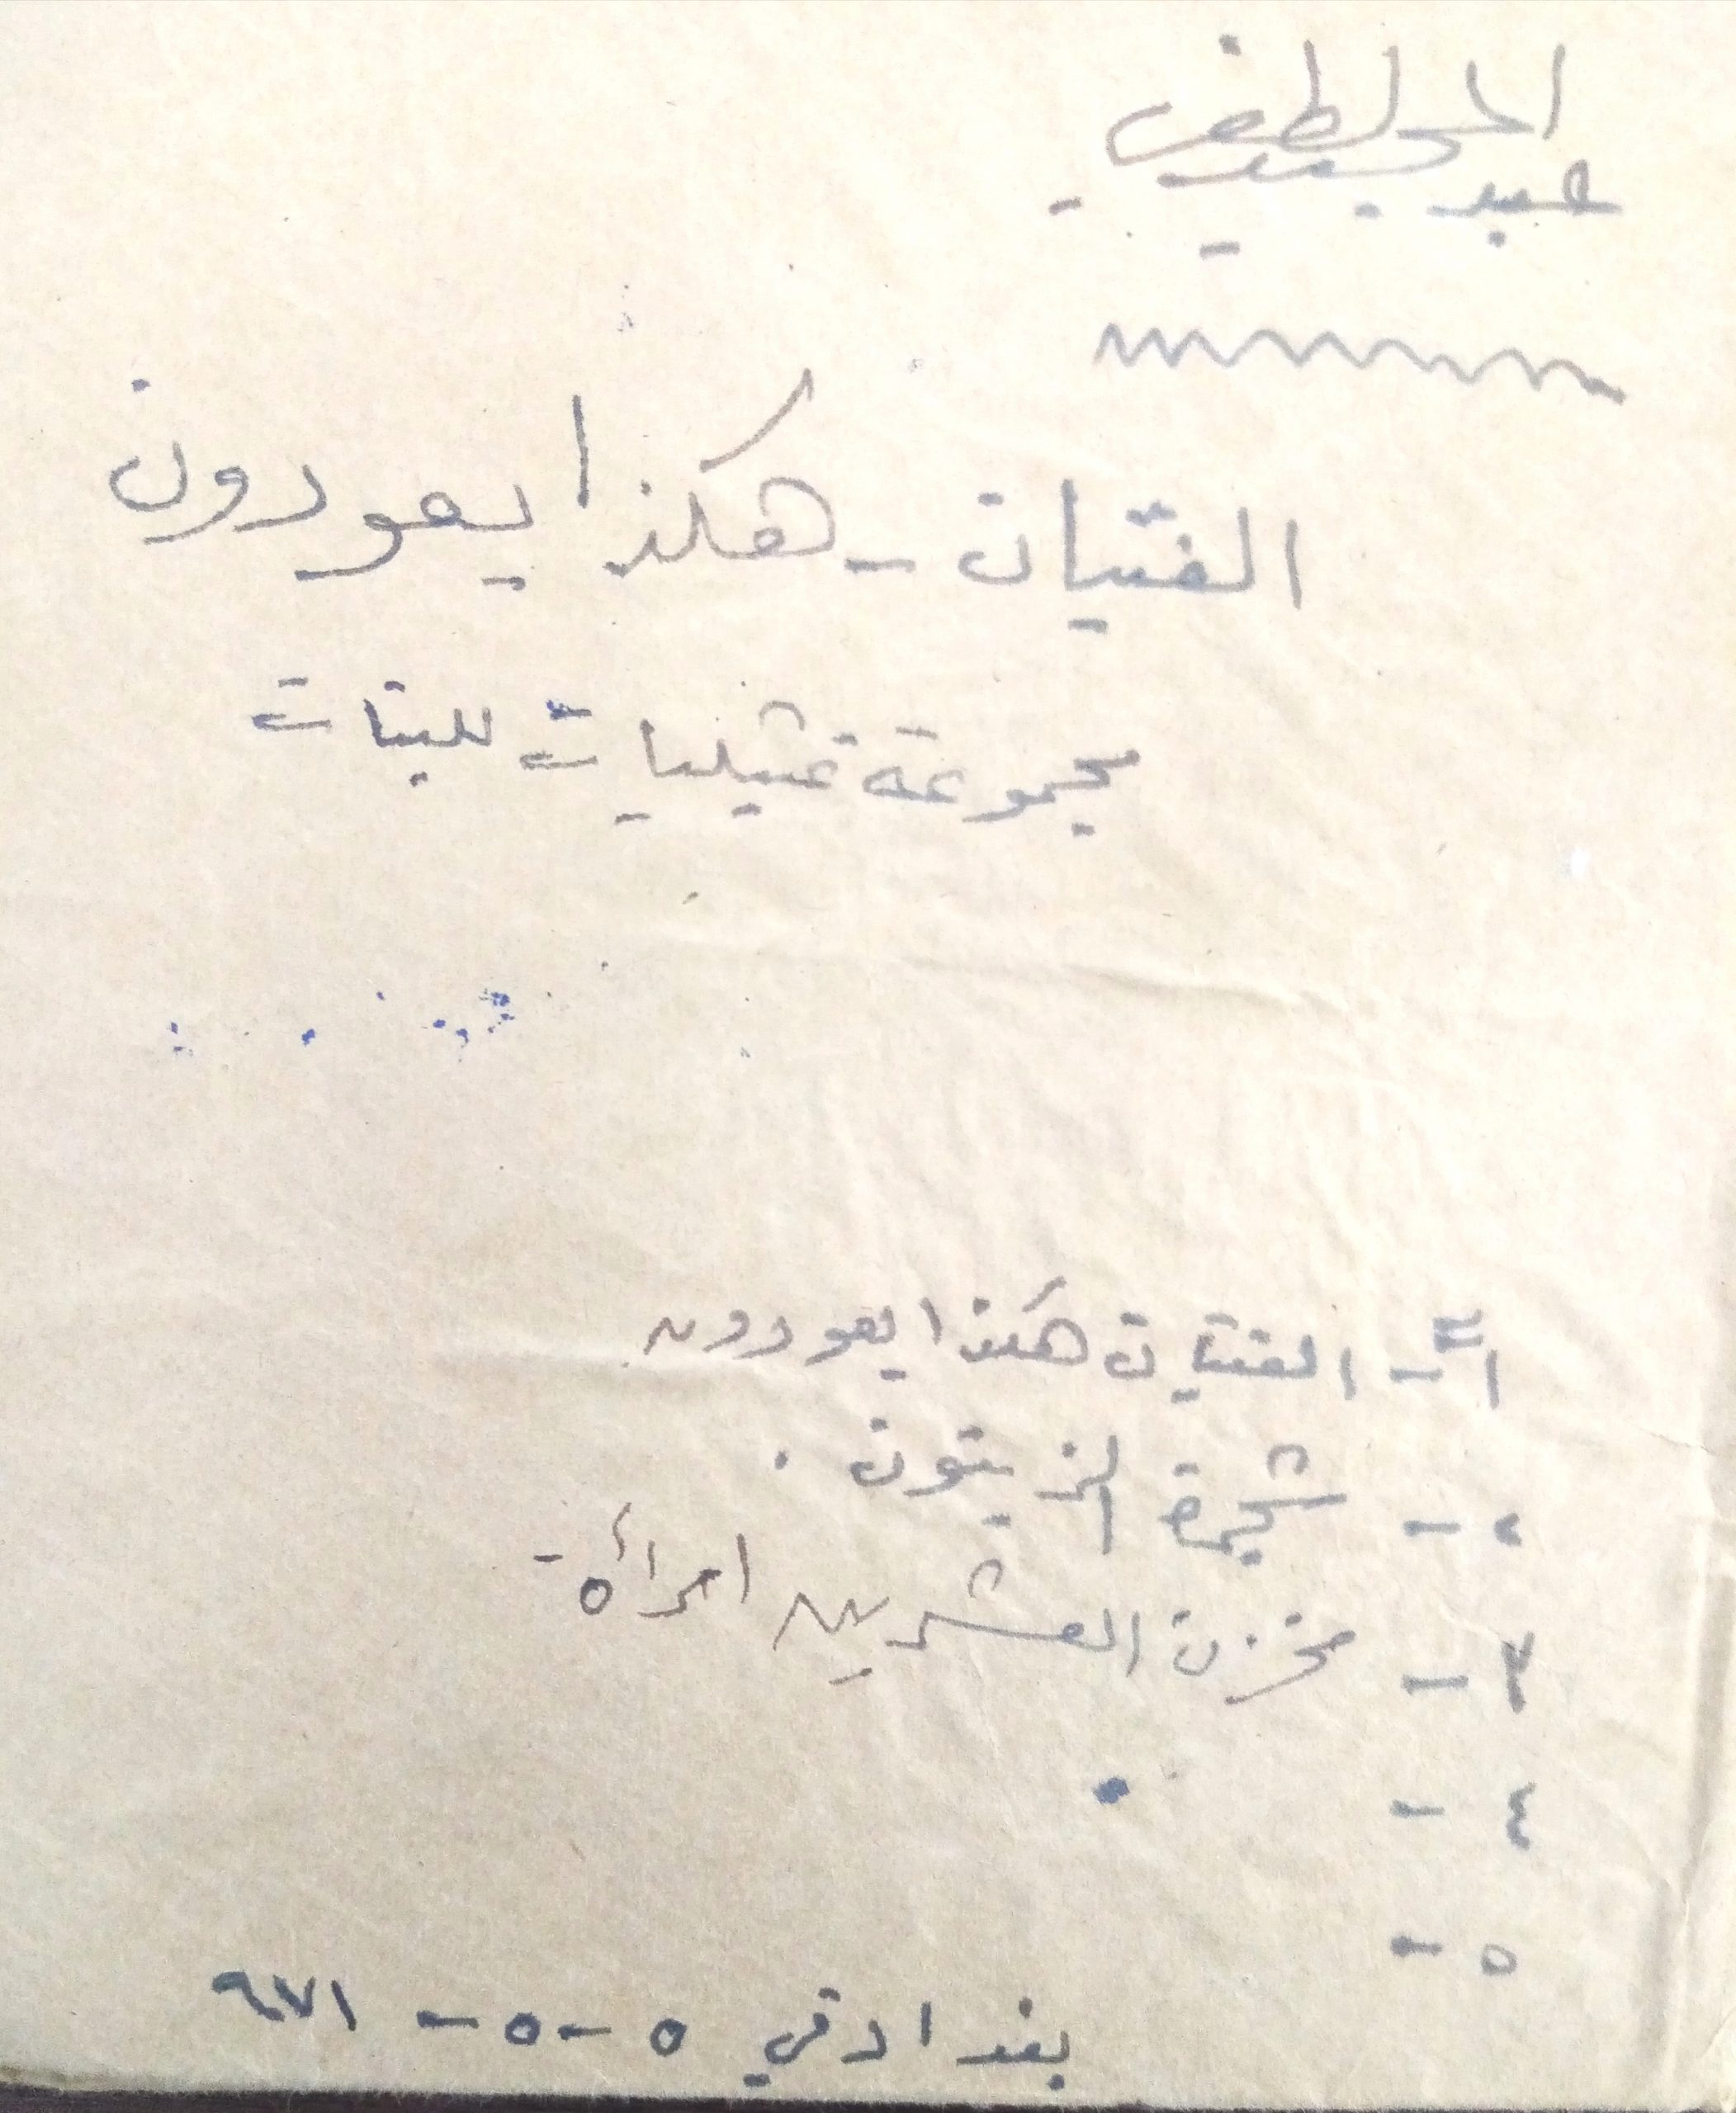 عبد المجيد لطفي
الفتيات - هكذا يعودون
مجموعة تمثيليات للبنات
١ - الفتيات هكذا يعودون
٢ - شجرة الزيتون .
٣ - مخزن العشرين امرأة -
٤ -
٥ -
بغداد في ٥ - ٥ - ٩٧١